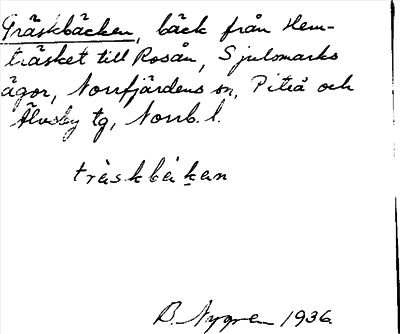 Träskbäcken, bäck från Hem-
träsket till Rosån, Sjulsmarks
ägor, Norrfjärdens sn, Piteå och
Älvsby tg, Norrb. l.
träskbäkan
B. Nygren 1936.